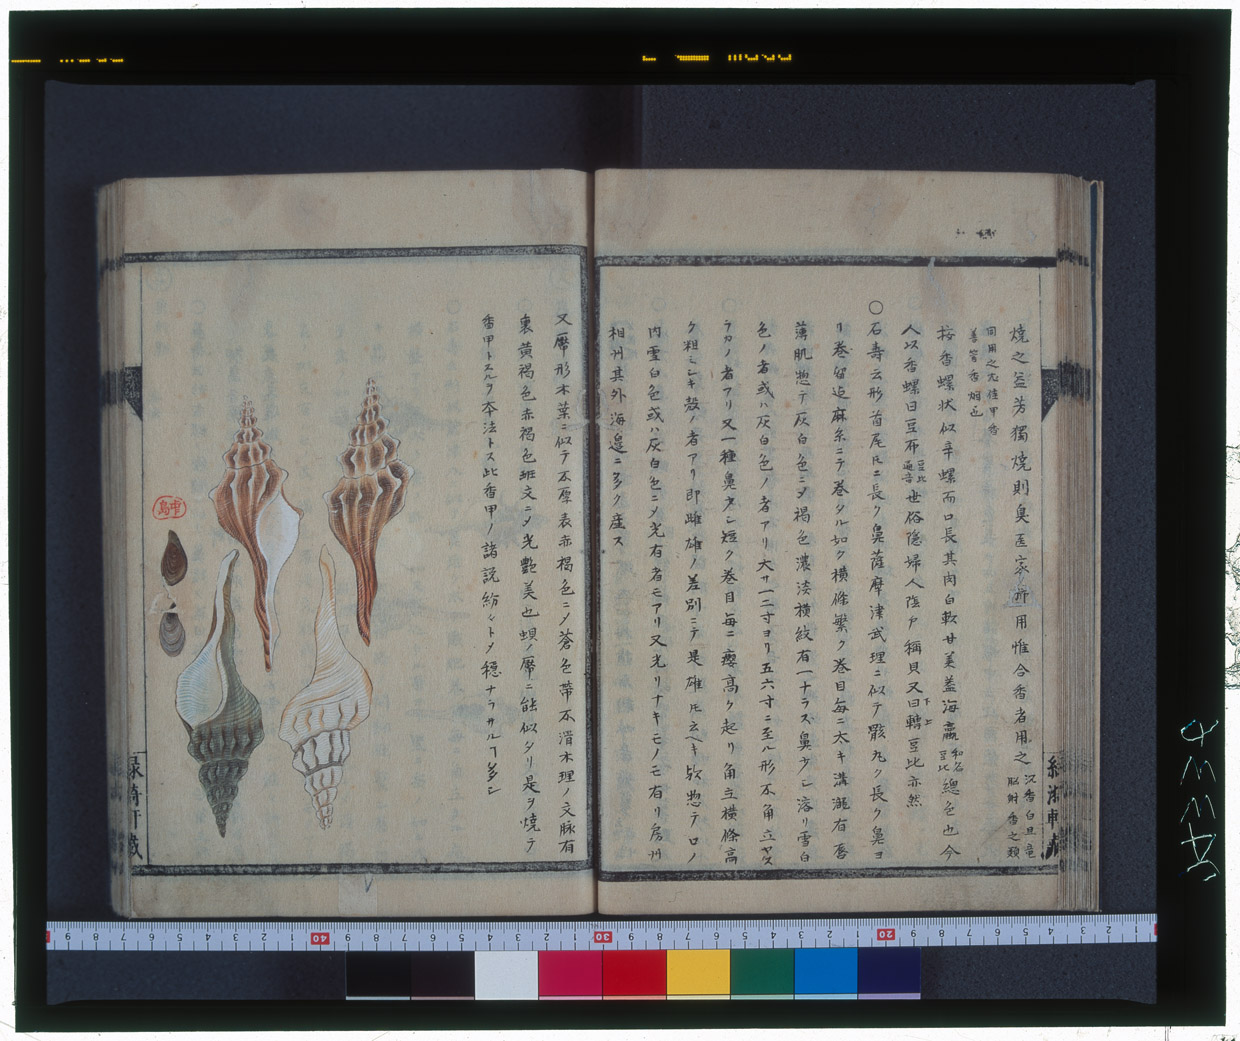 燒之益芳獨燒則臭医家ノ所用惟合香者用之 沉香白旦竜
脳射香之類
同用之尤佳甲香
善管香烟也
按香螺状似辛螺而口長其肉白軟甘美蓋海蠃 和名
豆比 總色也今
人以香螺曰豆布 豆比
通音 世俗隠婦人陰戸稱貝又曰轉豆比亦然
下上
〇石壽云形首尾氏ニ長ク鼻薩摩津武理ニ似テ骸丸ク長ク鼻ヨ
リ巻留迄麻糸ニテ巻タル如ク横條繁ク巻目每ニ大キ溝瀧有唇
薄肌惣テ灰白色ニメ褐色濃淡横紋有一十ラス鼻少シ溶リ雪白
色ノ者或ハ灰白色ノ者アリ大サ一二寸ヨリ五六寸ニ至ル形不角立ヤス
ラカノ者アリ又一種鼻少シ短ク巻目每ニ癭高ク起リ角立横條高
ク粗ミシキ殻ノ者アリ即雌雄ノ差別ニテ是雄氏云ヘキ欤惣テロノ
内雪白色或ハ灰白色ニメ光有者モアリ又光リナキモノモ有リ房州
相州其外海邉ニ多ク産ス
又厴形木葉ニ似テ不厚表赤褐色ニメ蒼色帶不滑木理ノ文脉有
裏黄褐色赤褐色班文ニメ光艶美也蜆ノ厴ニ能似タリ是ヲ燒テ
香甲トスルヲ夲法トス此香甲ノ諸説紛々トメ穏ナラサルヿ多シ